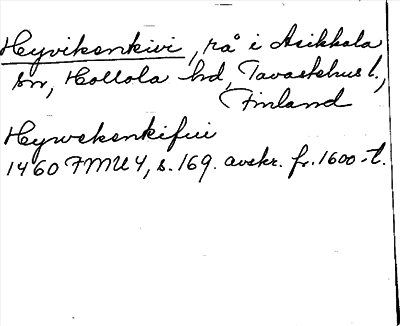 Heyvikenkivi, rå i Asikkala
sn, Hollola hd, Tavastehus l.,
Finland
Heywekenkifui
1460 FMU 4, s. 169. avskr. fr. 1600-t.